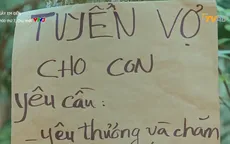 TUYỂN VỢ
CHO CON
yêu cầu:
- yêu thương và chăm